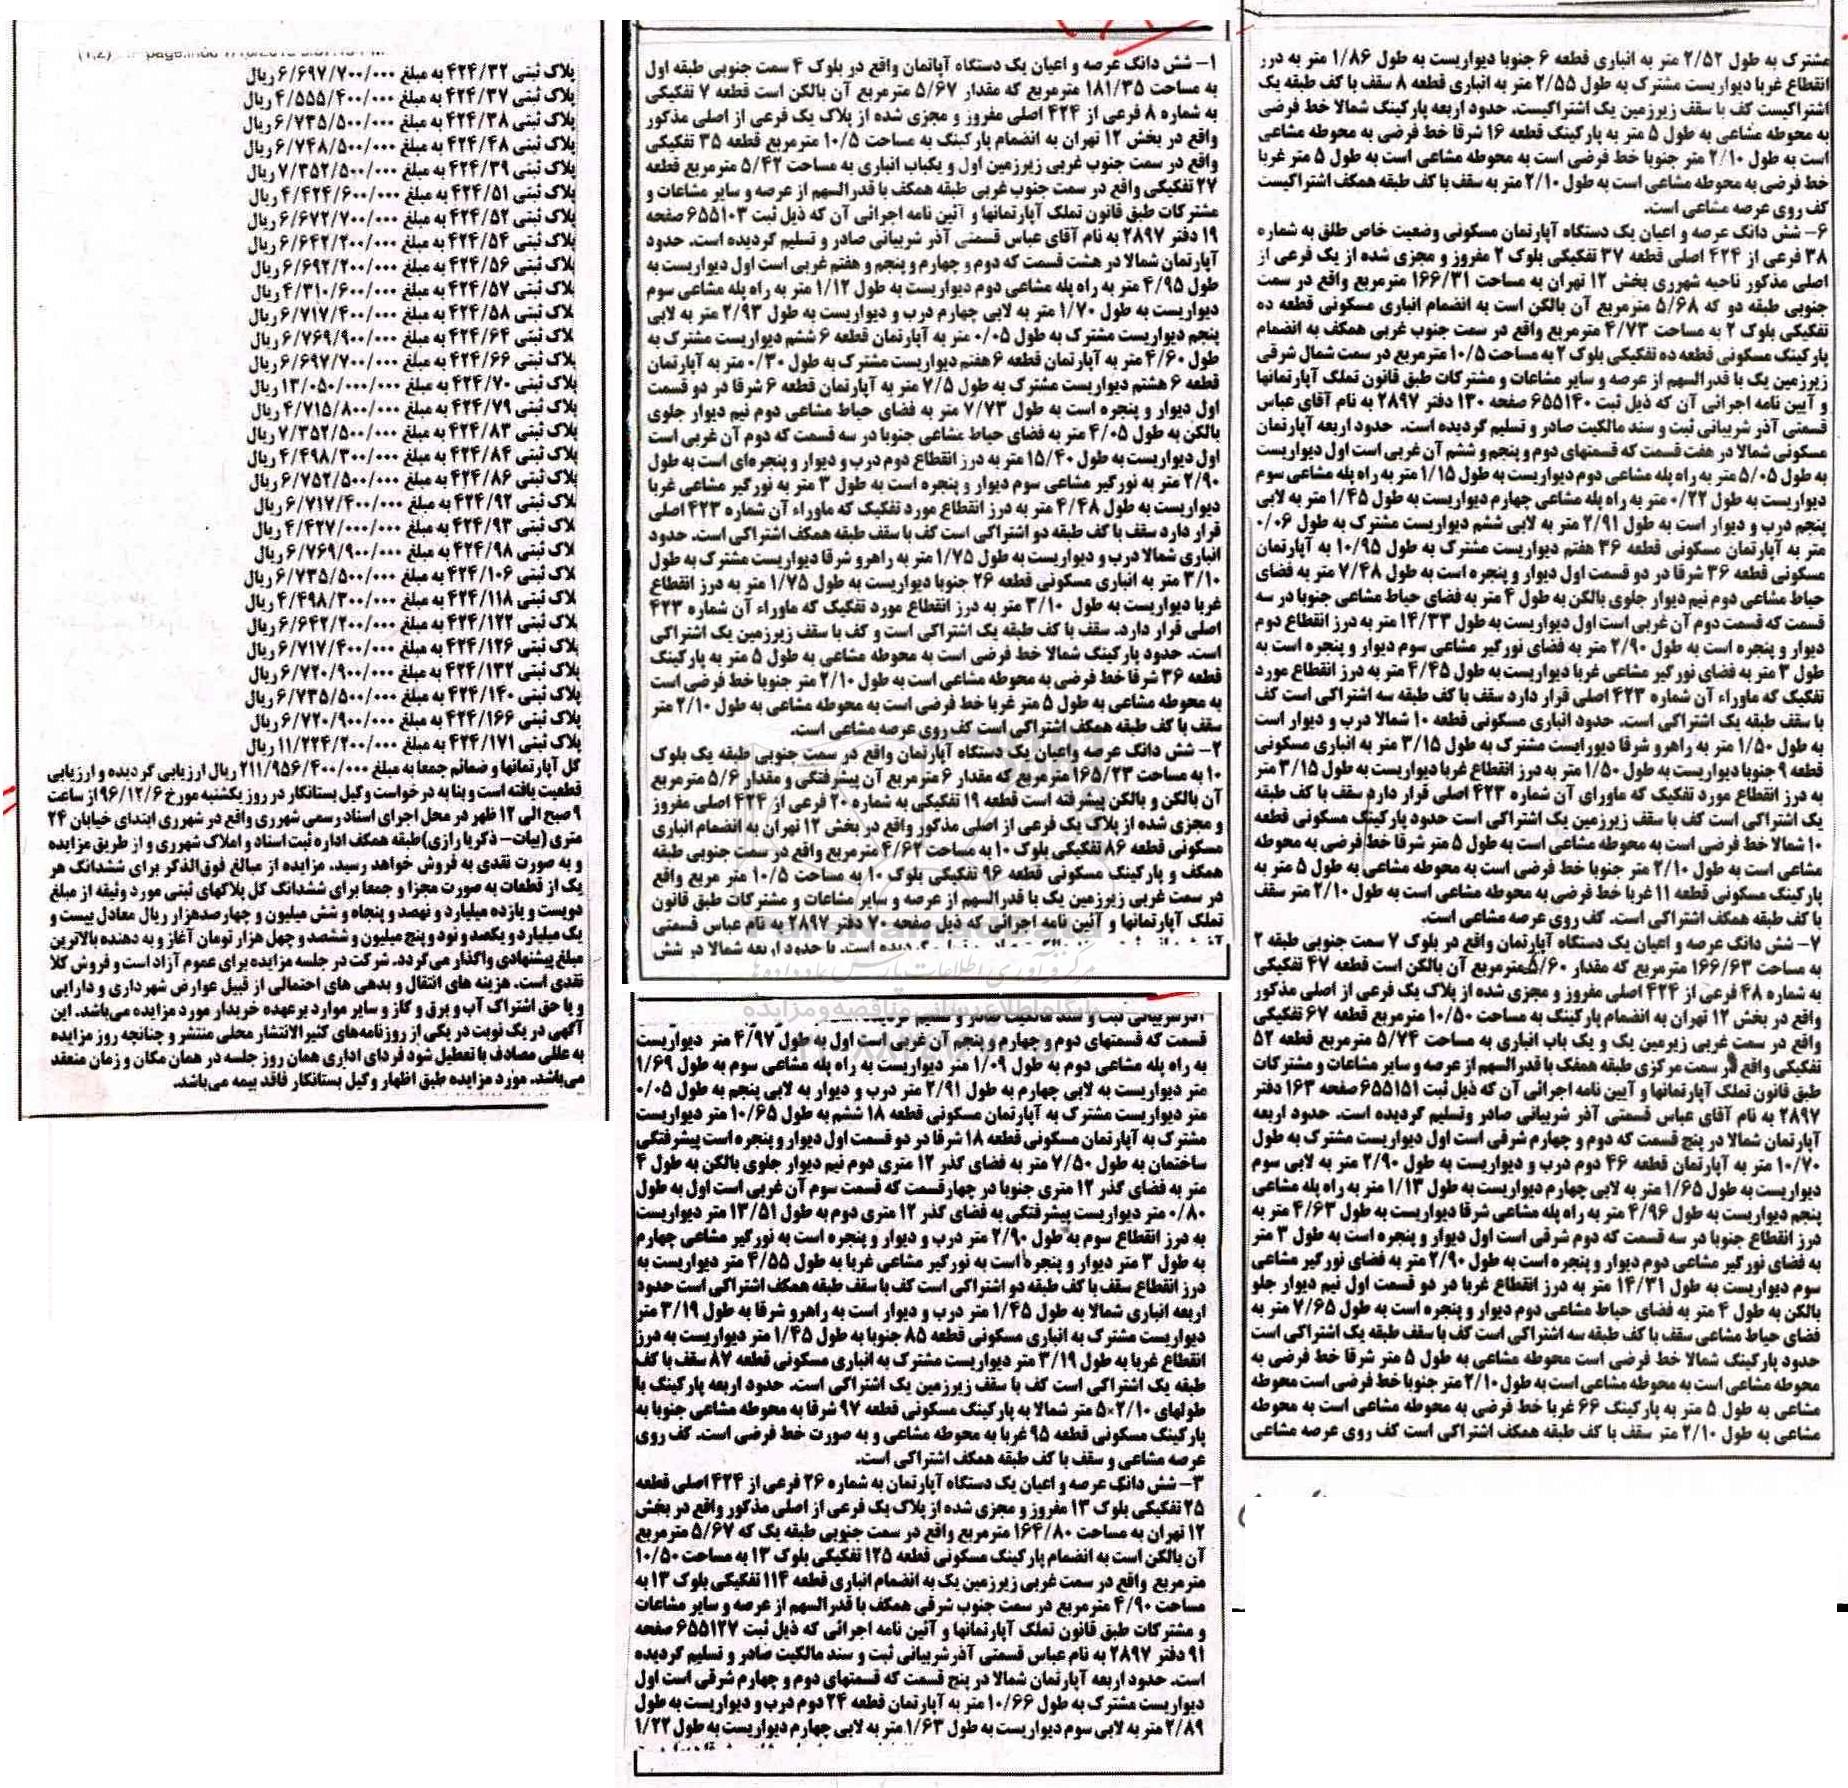 ۱- شش دانگ عرصه و اعیان یک دستگاه آپاتمان واقع در بلوک ۴ سمت جنوبی طبقه اول
به مساحت ۱۸۱/۳۵ مترمربع که مقدار ۵/۶۷ مترمربع آن بالکن است قطعه ۷ تفکیکی
به شماره ۸ فرعی از ۴۲۴ اصلی مفروز و مجزی شده از پلاک یک فرعی از اصلی مذکور
واقع در بخش ۱۲ تهران به انضمام پارکینگ به مساحت ۱۰/۵ مترمربع قطعه ۳۵ تفکیکی
واقع در سمت جنوب غربی زیرزمین اول و یکباب انباری به مساحت ۵/۴۲ مترمربع قطعه
۲۷ تفکیکی واقع در سمت جنوب غربی طبقه همکف با قدرالسهم از عرصه و سایر مشاعات و
مشترکات طبق قانون تملک آپارتمانها و آئین نامه اجرائی آن که ذیل ثبت ۶۵۵۱۰۳ صفحه
۱۹ دفتر ۲۸۹۷ به نام آقای عباس قسمتی آذر شربیانی صادر و تسلیم گردیده است. حدود
آپارتمان شمالا در هشت قسمت که دوم و چهارم و پنجم و هفتم غربی است اول دیواریست به
طول ۴/۹۵ متر به راه پله مشاعی دوم دیواریست به طول ۱/۱۲ متر به راه پله مشاعی سوم
دیواریست به طول ۱/۷۰ متر به لابی چهارم درب و دیواریست به طول ۲/۹۳ متر به لابی
پنجم دیواریست مشترک به طول ۰/۰۵ متر به آپارتمان قطعه ۶ ششم دیواریست مشترک به
طول ۴/۶۰ متر به آپارتمان قطعه ۶ هفتم دیواریست مشترک به طول ۰/۳۰ متر به آپارتمان
قطعه ۶ هشتم دیواریست مشترک به طول ۷/۵ متر به آپارتمان قطعه ۶ شرقا در دو قسمت
اول دیوار و پنجره است به طول ۷/۷۳ متر به فضای حیاط مشاعی دوم نیم دیوار جلوی
بالکن به طول ۴/۰۵ متر به فضای حیاط مشاعی جنوبا در سه قسمت که دوم آن غربی است
اول دیواریست به طول ۱۵/۴۰ متر به درز انقطاع دوم درب و دیوار و پنجره‌ای است به طول
۲/۹۰ متر به نورگیر مشاعی سوم دیوار و پنجره است به طول ۳ متر به نورگیر مشاعی غربا
دیواریست به طول ۴/۴۸ متر به درز انقطاع مورد تفکیک که ماوراء آن شماره ۴۲۳ اصلی
قرار دارد سقف با کف طبقه دو اشتراکی است کف با سقف طبقه همکف اشتراکی است. حدود
انباری شمالا درب و دیواریست به طول ۱/۷۵ متر به راهرو شرقا دیواریست مشترک به طول
۳/۱۰ متر به انباری مسکونی قطعه ۲۶ جنوبا دیواریست به طول ۱/۷۵ متر به درز انقطاع
غربا دیواریست به طول ۳/۱۰ متر به درز انقطاع مورد تفکیک که ماوراء آن شماره ۴۲۳
اصلی قرار دارد. سقف با کف طبقه یک اشتراکی است و کف با سقف زیرزمین یک اشتراکی
است. حدود پارکینگ شمالا خط فرضی است به محوطه مشاعی به طول ۵ متر به پارکینگ
قطعه ۳۶ شرقا خط فرضی به محوطه مشاعی است به طول ۲/۱۰ متر جنوبا خط فرضی است
به محوطه مشاعی به طول ۵ متر غربا خط فرضی است به محوطه مشاعی به طول ۲/۱۰ متر
سقف با کف طبقه همکف اشتراکی است کف روی عرصه مشاعی است.
۲- شش دانگ عرصه واعیان یک دستگاه آپارتمان واقع در سمت جنوبی طبقه یک بلوک
۱۰ به مساحت ۱۶۵/۲۳ مترمربع که مقدار ۶ مترمربع آن پیشرفتگی و مقدار ۵/۶ مترمربع
آن بالکن و بالکن پیشرفته است قطعه ۱۹ تفکیکی به شماره ۲۰ فرعی از ۴۲۴ اصلی مفروز
و مجزی شده از پلاک یک فرعی از اصلی مذکور واقع در بخش ۱۲ تهران به انضمام انباری
مسکونی قطعه ۸۶ تفکیکی بلوک ۱۰ به مساحت ۴/۶۲ مترمربع واقع در سمت جنوبی طبقه
همکف و پارکینگ مسکونی قطعه ۹۶ تفکیکی بلوک ۱۰ به مساحت ۱۰/۵ متر مربع واقع
در سمت غربی زیرزمین یک با قدرالسهم از عرصه و سایر مشاعات و مشترکات طبق قانون
تملک آپارتمانها و آئین نامه اجرائی که ذیل صفحه ۷۰ دفتر ۲۸۹۷ به نام عباس قسمتی
قسمت که قسمتهای دوم و چهارم و پنجم آن غربی است اول به طول ۴/۹۷ متر دیواریست
به راه پله مشاعی دوم به طول ۱/۰۹ متر دیواریست به راه پله مشاعی سوم به طول ۱/۶۹
متر دیواریست به لابی چهارم به طول ۲/۹۱ متر درب و دیوار به لابی پنجم به طول ۰/۰۵
متر دیواریست مشترک به آپارتمان مسکونی قطعه ۱۸ ششم به طول ۱۰/۶۵ متر دیواریست
مشترک به آپارتمان مسکونی قطعه ۱۸ شرقا در دو قسمت اول دیوار و پنجره است پیشرفتگی
ساختمان به طول ۷/۵۰ متر به فضای گذر ۱۲ متری دوم نیم دیوار جلوی بالکن به طول ۴
متر به فضای گذر ۱۲ متری جنوبا در چهارقسمت که قسمت سوم آن غربی است اول به طول
۰/۸۰ متر دیواریست پیشرفتگی به فضای گذر ۱۲ متری دوم به طول ۱۳/۵۱ متر دیواریست
به درز انقطاع سوم به طول ۲/۹۰ متر درب و دیوار و پنجره است به نورگیر مشاعی چهارم
به طول ۳ متر دیوار و پنجره است به نورگیر مشاعی غربا به طول ۴/۵۵ متر دیواریست به
درز انقطاع سقف با کف طبقه دو اشتراکی است کف با سقف طبقه همکف اشتراکی است حدود
اربعه انباری شمالا به طول ۱/۴۵ متر درب و دیوار است به راهرو شرقا به طول ۳/۱۹ متر
دیواریست مشترک به انباری مسکونی قطعه ۸۵ جنوبا به طول ۱/۴۵ متر دیواریست به درز
انقطاع غربا به طول ۳/۱۹ متر دیواریست مشترک به انباری مسکونی قطعه ۸۷ سقف با کف
طبقه یک اشتراکی است کف با سقف زیرزمین یک اشتراکی است. حدود اربعه پارکینگ با
طولهای ۲/۱۰×۵ متر شمالا به پارکینگ مسکونی قطعه ۹۷ شرقا به محوطه مشاعی جنوبا به
پارکینگ مسکونی قطعه ۹۵ غربا به محوطه مشاعی و به صورت خط فرضی است. کف روی
عرصه مشاعی و سقف با کف طبقه همکف اشتراکی است.
۳- شش دانگ عرصه و اعیان یک دستگاه آپارتمان به شماره ۲۶ فرعی از ۴۲۴ اصلی قطعه
۲۵ تفکیکی بلوک ۱۳ مفروز و مجزی شده از پلاک یک فرعی از اصلی مذکور واقع در بخش
۱۲ تهران به مساحت ۱۶۴/۸۰ مترمربع واقع در سمت جنوبی طبقه یک که ۵/۶۷ مترمربع
آن بالکن است به انضمام پارکینگ مسکونی قطعه ۱۲۵ تفکیکی بلوک ۱۳ به مساحت ۱۰/۵۰
مترمربع واقع در سمت غربی زیرزمین یک به انضمام انباری قطعه ۱۱۴ تفکیکی بلوک ۱۳ به
مساحت ۴/۹۰ مترمربع در سمت جنوب شرقی همکف با قدرالسهم از عرصه و سایر مشاعات
و مشترکات طبق قانون تملک آپارتمانها و آئین نامه اجرائی که ذیل ثبت ۶۵۵۱۲۷ صفحه
۹۱ دفتر ۲۸۹۷ به نام عباس قسمتی آذرشربیانی ثبت و سند مالکیت صادر و تسلیم گردیده
است. حدود اربعه آپارتمان شمالا در پنج قسمت که قسمتهای دوم و چهارم شرقی است اول
دیواریست مشترک به طول ۱۰/۶۶ متر به آپارتمان قطعه ۲۴ دوم درب و دیواریست به طول
۲/۸۹ متر به لابی سوم دیواریست به طول ۱/۶۳ متر به لابی چهارم دیواریست به طول ۱/۲۲
مشترک به طول ۲/۵۲ متر به انباری قطعه ۶ جنوبا دیواریست به طول ۱/۸۶ متر به درز
انقطاع غربا دیواریست مشترک به طول ۲/۵۵ متر به انباری قطعه ۸ سقف با کف طبقه یک
اشتراکیست کف با سقف زیرزمین یک اشتراکیست. حدود اربعه پارکینگ شمالا خط فرضی
به محوطه مشاعی به طول ۵ متر به پارکینگ قطعه ۱۶ شرقا خط فرضی به محوطه مشاعی
است به طول ۲/۱۰ متر جنوبا خط فرضی است به محوطه مشاعی است به طول ۵ متر غربا
خط فرضی به محوطه مشاعی است به طول ۲/۱۰ متر به سقف با کف طبقه همکف اشتراکیست
کف روی عرصه مشاعی است.
۶- شش دانگ عرصه و اعیان یک دستگاه آپارتمان مسکونی وضعیت خاص طلق به شماره
۳۸ فرعی از ۴۲۴ اصلی قطعه ۳۷ تفکیکی بلوک ۲ مفروز و مجزی شده از یک فرعی از
اصلی مذکور ناحیه شهرری بخش ۱۲ تهران به مساحت ۱۶۶/۳۱ مترمربع واقع در سمت
جنوبی طبقه دو که ۵/۶۸ مترمربع آن بالکن است به انضمام انباری مسکونی قطعه ده
تفکیکی بلوک ۲ به مساحت ۴/۷۳ مترمربع واقع در سمت جنوب غربی همکف به انضمام
پارکینگ مسکونی قطعه ده تفکیکی بلوک ۲ به مساحت ۱۰/۵ مترمربع در سمت شمال شرقی
زیرزمین یک با قدرالسهم از عرصه و سایر مشاعات و مشترکات طبق قانون تملک آپارتمانها
و آیین نامه اجرائی آن که ذیل ثبت ۶۵۵۱۴۰ صفحه ۱۳۰ دفتر ۲۸۹۷ به نام آقای عباس
قسمتی آذر شربیانی ثبت و سند مالکیت صادر و تسلیم گردیده است. حدود اربعه آپارتمان
مسکونی شمالا در هفت قسمت که قسمتهای دوم و پنجم و ششم آن غربی است اول دیواریست
به طول ۵/۰۵ متر به راه پله مشاعی دوم دیواریست به طول ۱/۱۵ متر به راه پله مشاعی سوم
دیواریست به طول ۰/۲۲ متر به راه پله مشاعی چهارم دیواریست به طول ۱/۴۵ متر به لابی
پنجم درب و دیوار است به طول ۲/۹۱ متر به لابی ششم دیواریست مشترک به طول ۰/۰۶
متر به آپارتمان مسکونی قطعه ۳۶ هفتم دیواریست مشترک به طول ۱۰/۹۵ به آپارتمان
مسکونی قطعه ۳۶ شرقا در دو قسمت اول دیوار و پنجره است به طول ۷/۴۸ متر به فضای
حیاط مشاعی دوم نیم دیوار جلوی بالکن به طول ۴ متر به فضای حیاط مشاعی جنوبا در سه
قسمت که قسمت دوم آن غربی است اول دیواریست به طول ۱۴/۳۳ متر به درز انقطاع دوم
دیوار و پنجره است به طول ۲/۹۰ متر به فضای نورگیر مشاعی سوم دیوار و پنجره است به
طول ۳ متر به فضای نورگیر مشاعی غربا دیواریست به طول ۴/۴۵ متر به درز انقطاع مورد
تفکیک که ماوراء آن شماره ۴۲۳ اصلی قرار دارد سقف با کف طبقه سه اشتراکی است کف
با سقف طبقه یک اشتراکی است. حدود انباری مسکونی قطعه ۱۰ شمالا درب و دیوار است
به طول ۱/۵۰ متر به راهرو شرقا دیوراریست مشترک به طول ۳/۱۵ متر به انباری مسکونی
قطعه ۹ جنوبا دیواریست به طول ۱/۵۰ متر به درز انقطاع غربا دیواریست به طول ۳/۱۵ متر
به درز انقطاع مورد تفکیک که ماورای آن شماره ۴۲۳ اصلی قرار دارد سقف با کف طبقه
یک اشتراکی است کف با سقف زیرزمین یک اشتراکی است حدود پارکینگ مسکونی قطعه
۱۰ شمالا خط فرضی است به محوطه مشاعی است به طول ۵ متر شرقا خط فرضی به محوطه
مشاعی است به طول ۲/۱۰ متر جنوبا خط فرضی است به محوطه مشاعی به طول ۵ متر به
پارکینگ مسکونی قطعه ۱۱ غربا خط فرضی به محوطه مشاعی است به طول ۲/۱۰ متر سقف
با کف طبقه همکف اشتراکی است. کف روی عرصه مشاعی است.
۷- شش دانگ عرصه و اعیان یک دستگاه آپارتمان واقع در بلوک ۷ سمت جنوبی طبقه ۲
به مساحت ۱۶۶/۶۳ مترمربع که مقدار ۵/۶۰ مترمربع آن بالکن است قطعه ۴۷ تفکیکی
به شماره ۴۸ فرعی از ۴۲۴ اصلی مفروز و مجزی شده از پلاک یک فرعی از اصلی مذکور
واقع در بخش ۱۲ تهران به انضمام پارکینگ به مساحت ۱۰/۵۰ مترمربع قطعه ۶۷ تفکیکی
واقع در سمت غربی زیرمین یک و یک باب انباری به مساحت ۵/۷۴ مترمربع قطعه ۵۲
تفکیکی واقع در سمت مرکزی طبقه همفک با قدرالسهم از عرصه و سایر مشاعات و مشترکات
طبق قانون تملک آپارتمانها و آیین نامه اجرائی آن که ذیل ثبت ۶۵۵۱۵۱ صفحه ۱۶۳ دفتر
۲۸۹۷ به نام آقای عباس قسمتی آذر شربیانی صادر وتسلیم گردیده است. حدود اربعه
آپارتمان شمالا در پنج قسمت که دوم و چهارم شرقی است اول دیواریست مشترک به طول
۱۰/۷۰ متر به آپارتمان قطعه ۴۶ دوم درب و دیواریست به طول ۲/۹۰ متر به لابی سوم
دیواریست به طول ۱/۶۵ متر به لابی چهارم دیواریست به طول ۱/۱۳ متر به راه پله مشاعی
پنجم دیواریست به طول ۴/۹۶ متر به راه پله مشاعی شرقا دیواریست به طول ۴/۶۳ متر به
درز انقطاع جنوبا در سه قسمت که دوم شرقی است اول دیوار و پنجره است به طول ۳ متر
به فضای نورگیر مشاعی دوم دیوار و پنجره است به طول ۲/۹۰ متر به فضای نورگیر مشاعی
سوم دیواریست به طول ۱۴/۳۱ متر به درز انقطاع غربا در دو قسمت اول نیم دیوار جلو
بالکن به طول ۴ متر به فضای حیاط مشاعی دوم دیوار و پنجره است به طول ۷/۶۵ متر به
فضای حیاط مشاعی سقف با کف طبقه سه اشتراکی است کف با سقف طبقه یک اشتراکی است
حدود پارکینگ شمالا خط فرضی است محوطه مشاعی به طول ۵ متر شرقا خط فرضی به
محوطه مشاعی است به محوطه مشاعی است به طول ۲/۱۰ متر جنوبا خط فرضی است محوطه
مشاعی به طول ۵ متر به پارکینگ ۶۶ غربا خط فرضی به محوطه مشاعی است به محوطه
مشاعی به طول ۲/۱۰ متر سقف با کف طبقه همکف اشتراکی است کف روی عرصه مشاعی
پلاک ثبتی ۴۲۴/۳۲ به مبلغ ۶/۶۹۷/۷۰۰/۰۰۰ ریال
پلاک ثبتی ۴۲۴/۳۷ به مبلغ ۴/۵۵۵/۴۰۰/۰۰۰ ریال
پلاک ثبتی ۴۲۴/۳۸ به مبلغ ۶/۷۳۵/۵۰۰/۰۰۰ ریال
پلاک ثبتی ۴۲۴/۴۸ به مبلغ ۶/۷۴۸/۵۰۰/۰۰۰ ریال
پلاک ثبتی ۴۲۴/۳۹ به مبلغ ۷/۳۵۲/۵۰۰/۰۰۰ ریال
پلاک ثبتی ۴۲۴/۵۱ به مبلغ ۴/۴۲۴/۶۰۰/۰۰۰ ریال
پلاک ثبتی ۴۲۴/۵۲ به مبلغ ۶/۶۷۲/۷۰۰/۰۰۰ ریال
پلاک ثبتی ۴۲۴/۵۴ به مبلغ ۶/۶۴۲/۲۰۰/۰۰۰ ریال
پلاک ثبتی ۴۲۴/۵۶ به مبلغ ۶/۶۹۲/۲۰۰/۰۰۰ ریال
پلاک ثبتی ۴۲۴/۵۷ به مبلغ ۴/۳۱۰/۶۰۰/۰۰۰ ریال
پلاک ثبتی ۴۲۴/۵۸ به مبلغ ۶/۷۱۷/۴۰۰/۰۰۰ ریال
پلاک ثبتی ۴۲۴/۶۴ به مبلغ ۶/۷۶۹/۹۰۰/۰۰۰ ریال
پلاک ثبتی ۴۲۴/۶۶ به مبلغ ۶/۶۹۷/۷۰۰/۰۰۰ ریال
پلاک ثبتی ۴۲۴/۷۰ به مبلغ ۱۳/۰۵۰/۰۰۰/۰۰۰ ریال
پلاک ثبتی ۴۲۴/۷۹ به مبلغ ۴/۷۱۵/۸۰۰/۰۰۰ ریال
پلاک ثبتی ۴۲۴/۸۳ به مبلغ ۷/۳۵۲/۵۰۰/۰۰۰ ریال
پلاک ثبتی ۴۲۴/۸۴ به مبلغ ۴/۴۹۸/۳۰۰/۰۰۰ ریال
پلاک ثبتی ۴۲۴/۸۶ به مبلغ ۶/۷۵۲/۵۰۰/۰۰۰ ریال
پلاک ثبتی ۴۲۴/۹۲ به مبلغ ۶/۷۱۷/۴۰۰/۰۰۰ ریال
پلاک ثبتی ۴۲۴/۹۳ به مبلغ ۴/۴۲۷/۰۰۰/۰۰۰ ریال
لاک ثبتی ۴۲۴/۹۸ به مبلغ ۶/۷۶۹/۹۰۰/۰۰۰ ریال
پلاک ثبتی ۴۲۴/۱۰۶ به مبلغ ۶/۷۳۵/۵۰۰/۰۰۰ ریال
پلاک ثبتی ۴۲۴/۱۱۸ به مبلغ ۴/۴۹۸/۳۰۰/۰۰۰ ریال
پلاک ثبتی ۴۲۴/۱۲۲ به مبلغ ۶/۶۴۲/۲۰۰/۰۰۰ ریال
پلاک ثبتی ۴۲۴/۱۲۶ به مبلغ ۶/۷۱۷/۴۰۰/۰۰۰ ریال
پلاک ثبتی ۴۲۴/۱۳۲ به مبلغ ۶/۷۲۰/۹۰۰/۰۰۰ ریال
پلاک ثبتی ۴۲۴/۱۴۰ به مبلغ ۶/۷۳۵/۵۰۰/۰۰۰ ریال
پلاک ثبتی ۴۲۴/۱۶۶ به مبلغ ۶/۷۲۰/۹۰۰/۰۰۰ ریال
پلاک ثبتی ۴۲۴/۱۷۱ به مبلغ ۱۱/۲۲۴/۲۰۰/۰۰۰ ریال
کل آپارتمانها و ضمائم جمعا به مبلغ ۲۱۱/۹۵۶/۴۰۰/۰۰۰ ریال ارزیابی گردیده و ارزیابی
قطعیت یافته است و بنا به درخواست وکیل بستانکار در روز یکشنبه مورخ ۹۶/۱۲/۶ از ساعت
۹ صبح الی ۱۲ ظهر در محل اجرای اسناد رسمی شهرری واقع در شهرری ابتدای خیابان ۲۴
متری (بیات- ذکریا رازی) طبقه همکف اداره ثبت اسناد و املاک شهرری و از طریق مزایده
و به صورت نقدی به فروش خواهد رسید. مزایده از مبالغ فوق‌الذکر برای ششدانگ هر
یک از قطعات به صورت مجزا و جمعا برای ششدانگ کل پلاکهای ثبتی مورد وثیقه از مبلغ
دویست و یازده میلیارد و نهصد و پنجاه و شش میلیون و چهارصدهزار ریال معادل بیست و
یک میلیارد و یکصد و نود و پنج میلیون و ششصد و چهل هزار تومان آغاز و به دهنده بالاترین
مبلغ پیشنهادی واگذار می‌گردد. شرکت در جلسه مزایده برای عموم آزاد است و فروش کلا
نقدی است. هزینه های انتقال و بدهی های احتمالی از قبیل عوارض شهرداری و دارایی
و یا حق اشتراک آب و برق و گاز و سایر موارد برعهده خریدار مورد مزایده می‌باشد. این
آگهی در یک نوبت در یکی از روزنامه‌های کثیرالانتشار محلی منتشر و چنانچه روز مزایده
به عللی مصادف با تعطیل شود فردای اداری همان روز جلسه در همان مکان و زمان منعقد
می‌باشد. مورد مزایده طبق اظهار وکیل بستانکار فاقد بیمه می‌باشد.